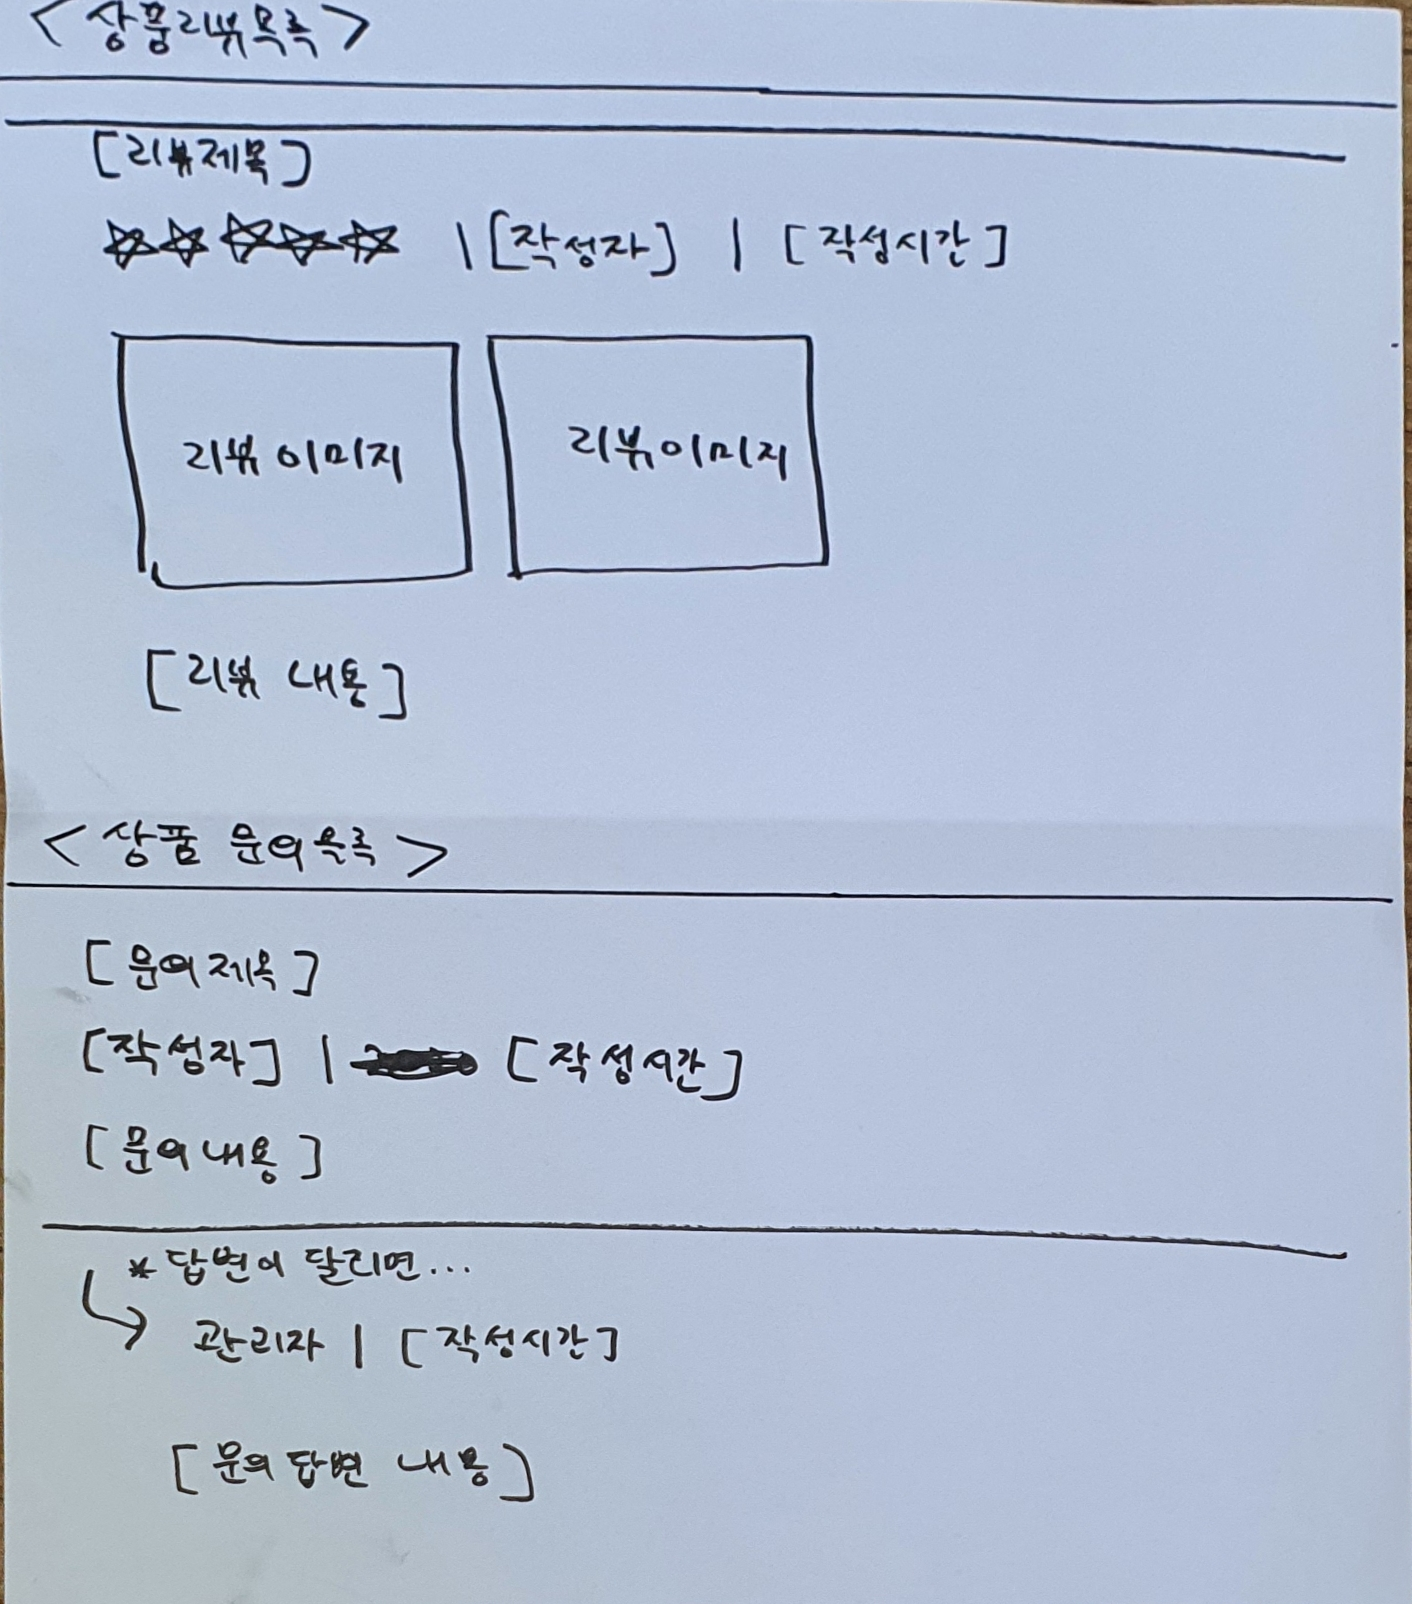 < 상품리뷰목록 >
[리뷰제목]
☆☆☆☆☆ | [작성자] | [작성시간]
리뷰 이미지 리뷰이미지
[리뷰 내용]
< 상품 문의목록 >
[문의제목]
[작성자] | [작성시간]
[문의내용]
* 답변이 달리면...
관리자 | [작성시간]
[문의답변 내용]